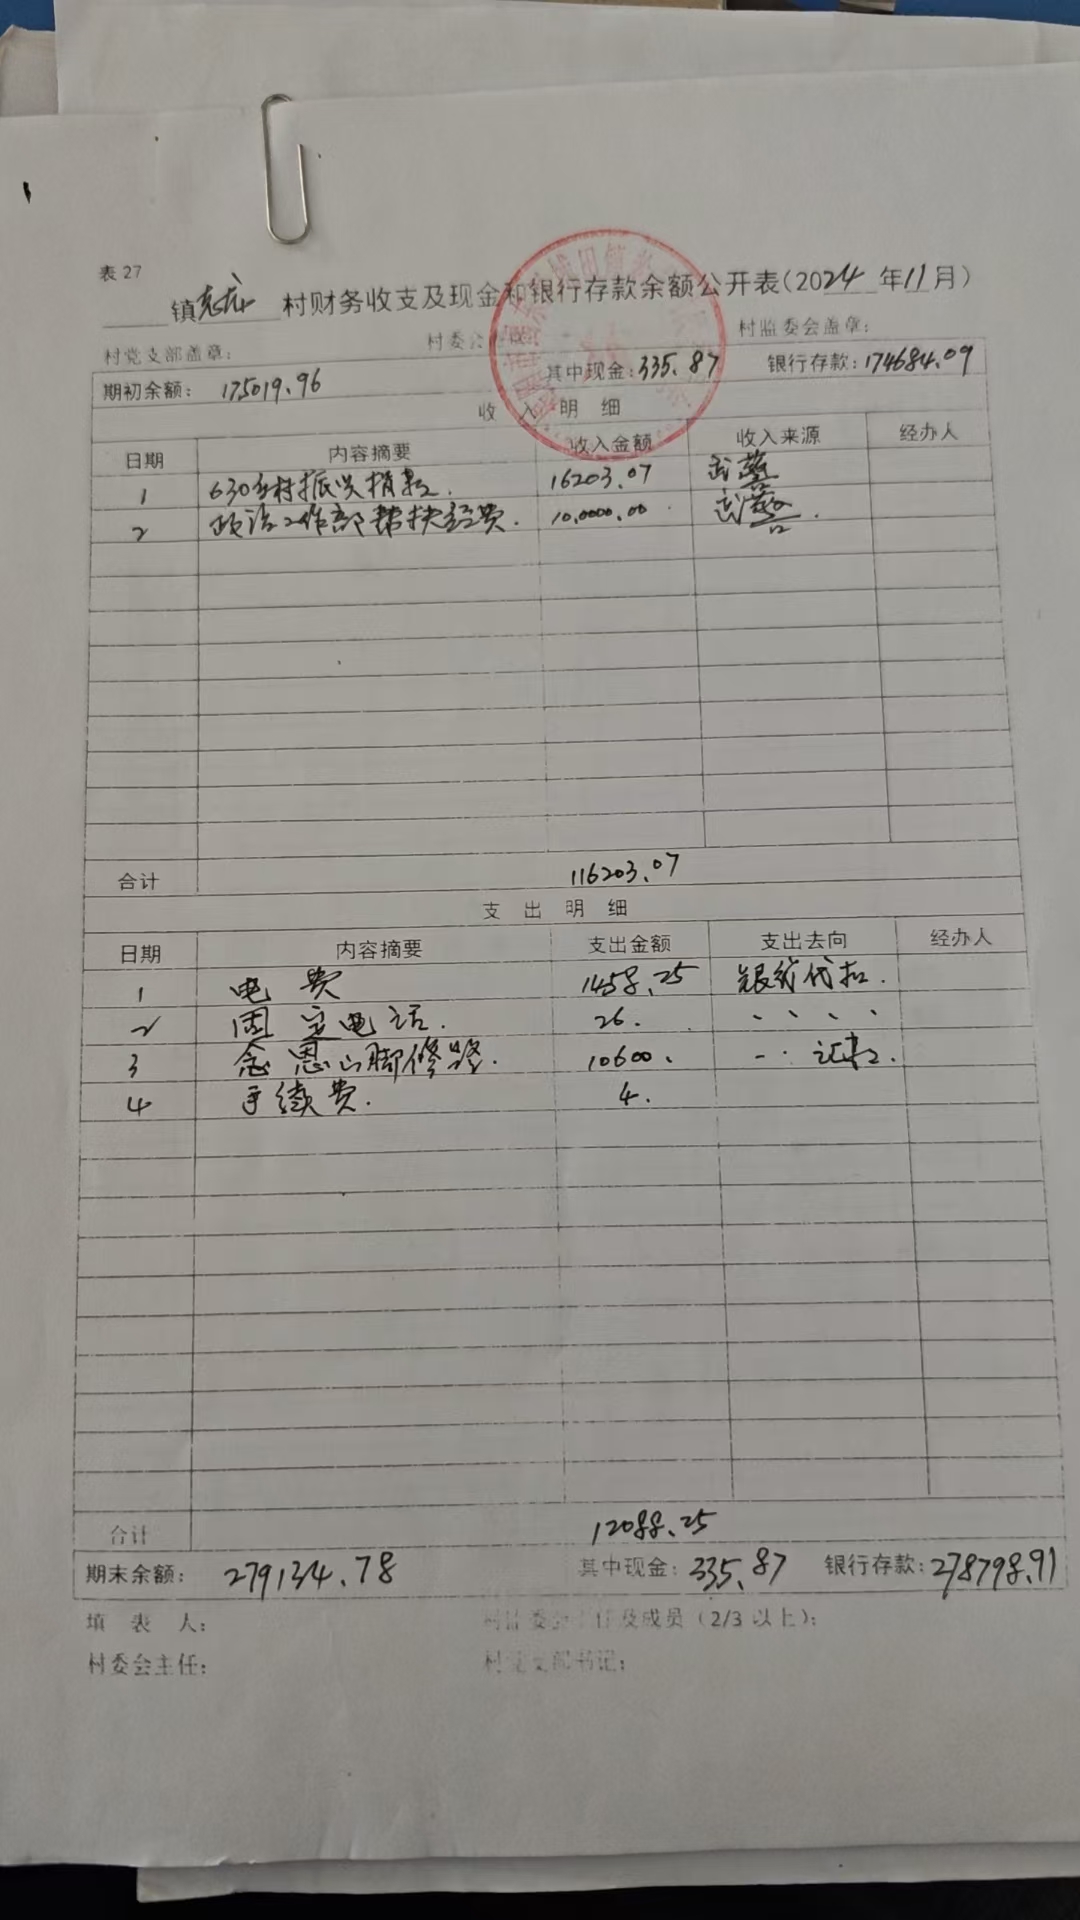 表 27
镇志凉村财务收支及现金和银行存款余额公开表(2024年11月)
村党支部盖章: 村委会 村监委会盖章:
期初余额: 175019.96 其中现金:335.87 银行存款:174684.09
收 入 明 细
日期 内容摘要 收入金额 收入来源 经办人
1 630乡村振兴捐款. 16203.07 武警
2 政治工作部帮扶经费. 10,0000.00 武警.
合计 116203.07
支 出 明 细
日期 内容摘要 支出金额 支出去向 经办人
1 电 费 1458.25 银行代扣.
2 固定电话. 26. 、、、、
3 念恩山脚修路. 10600.
4 手续费. 4.
合计 12088.25
期末余额: 279134.78 其中现金: 335.87 银行存款:278798.91
填 表 人: 村监委会主任及成员(2/3 以上):
村委会主任: 村党支部书记: